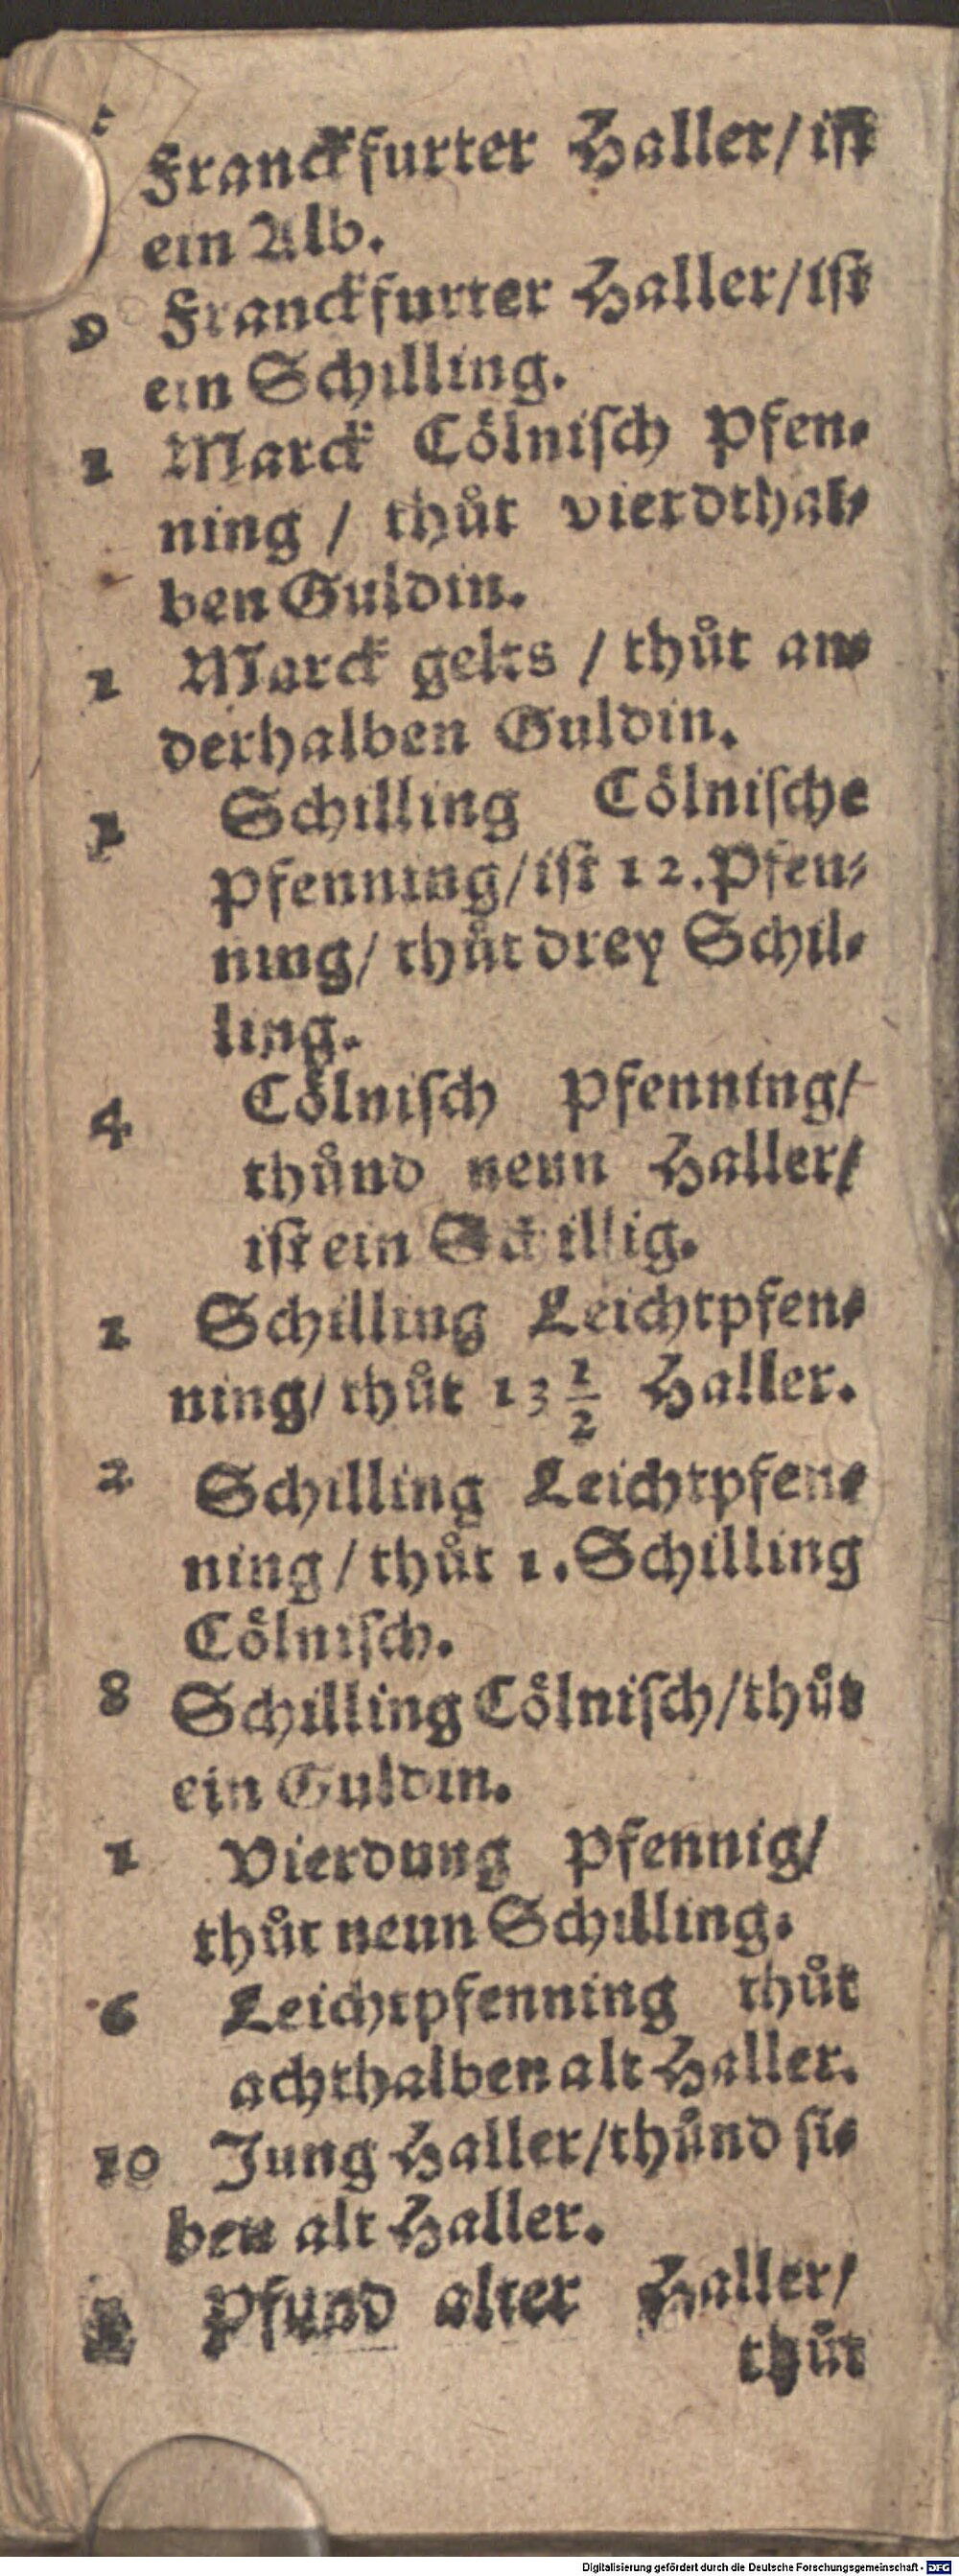 Franckfurter Haller/ist
ein Alb.
9 Franckfurter Haller/ist
ein Schilling.
1 Marck Cölnisch Pfen⸗
ning / thůt vierdthal⸗
ben Guldin.
1 Marck gelts / thůt an⸗
derhalben Guldin.
1 Schilling Cölnische
Pfenning/ist 12. Pfen⸗
ning/ thůt drey Schil⸗
ling.
4 Cölnisch Pfenning/
thůnd neun Haller/
ist ein Schillig.
1 Schilling Leichtpfen⸗
ning/ thůt 13 1/2 Haller.
2 Schilling Leichtpfen⸗
ning/ thůt 1. Schilling
Cölnisch.
8 Schilling Cölnisch/thůt
ein Guldin.
1 Vierdung Pfennig/
thůt neun Schilling.
6 Leichtpfenning thůt
achthalben alt Haller.
10 Jung Haller/thůnd sie⸗
ben alt Haller.
Pfund alter Haller/
thůt
Digitalisierung gefördert durch die Deutsche Forschungsgemeinschaft - DFG